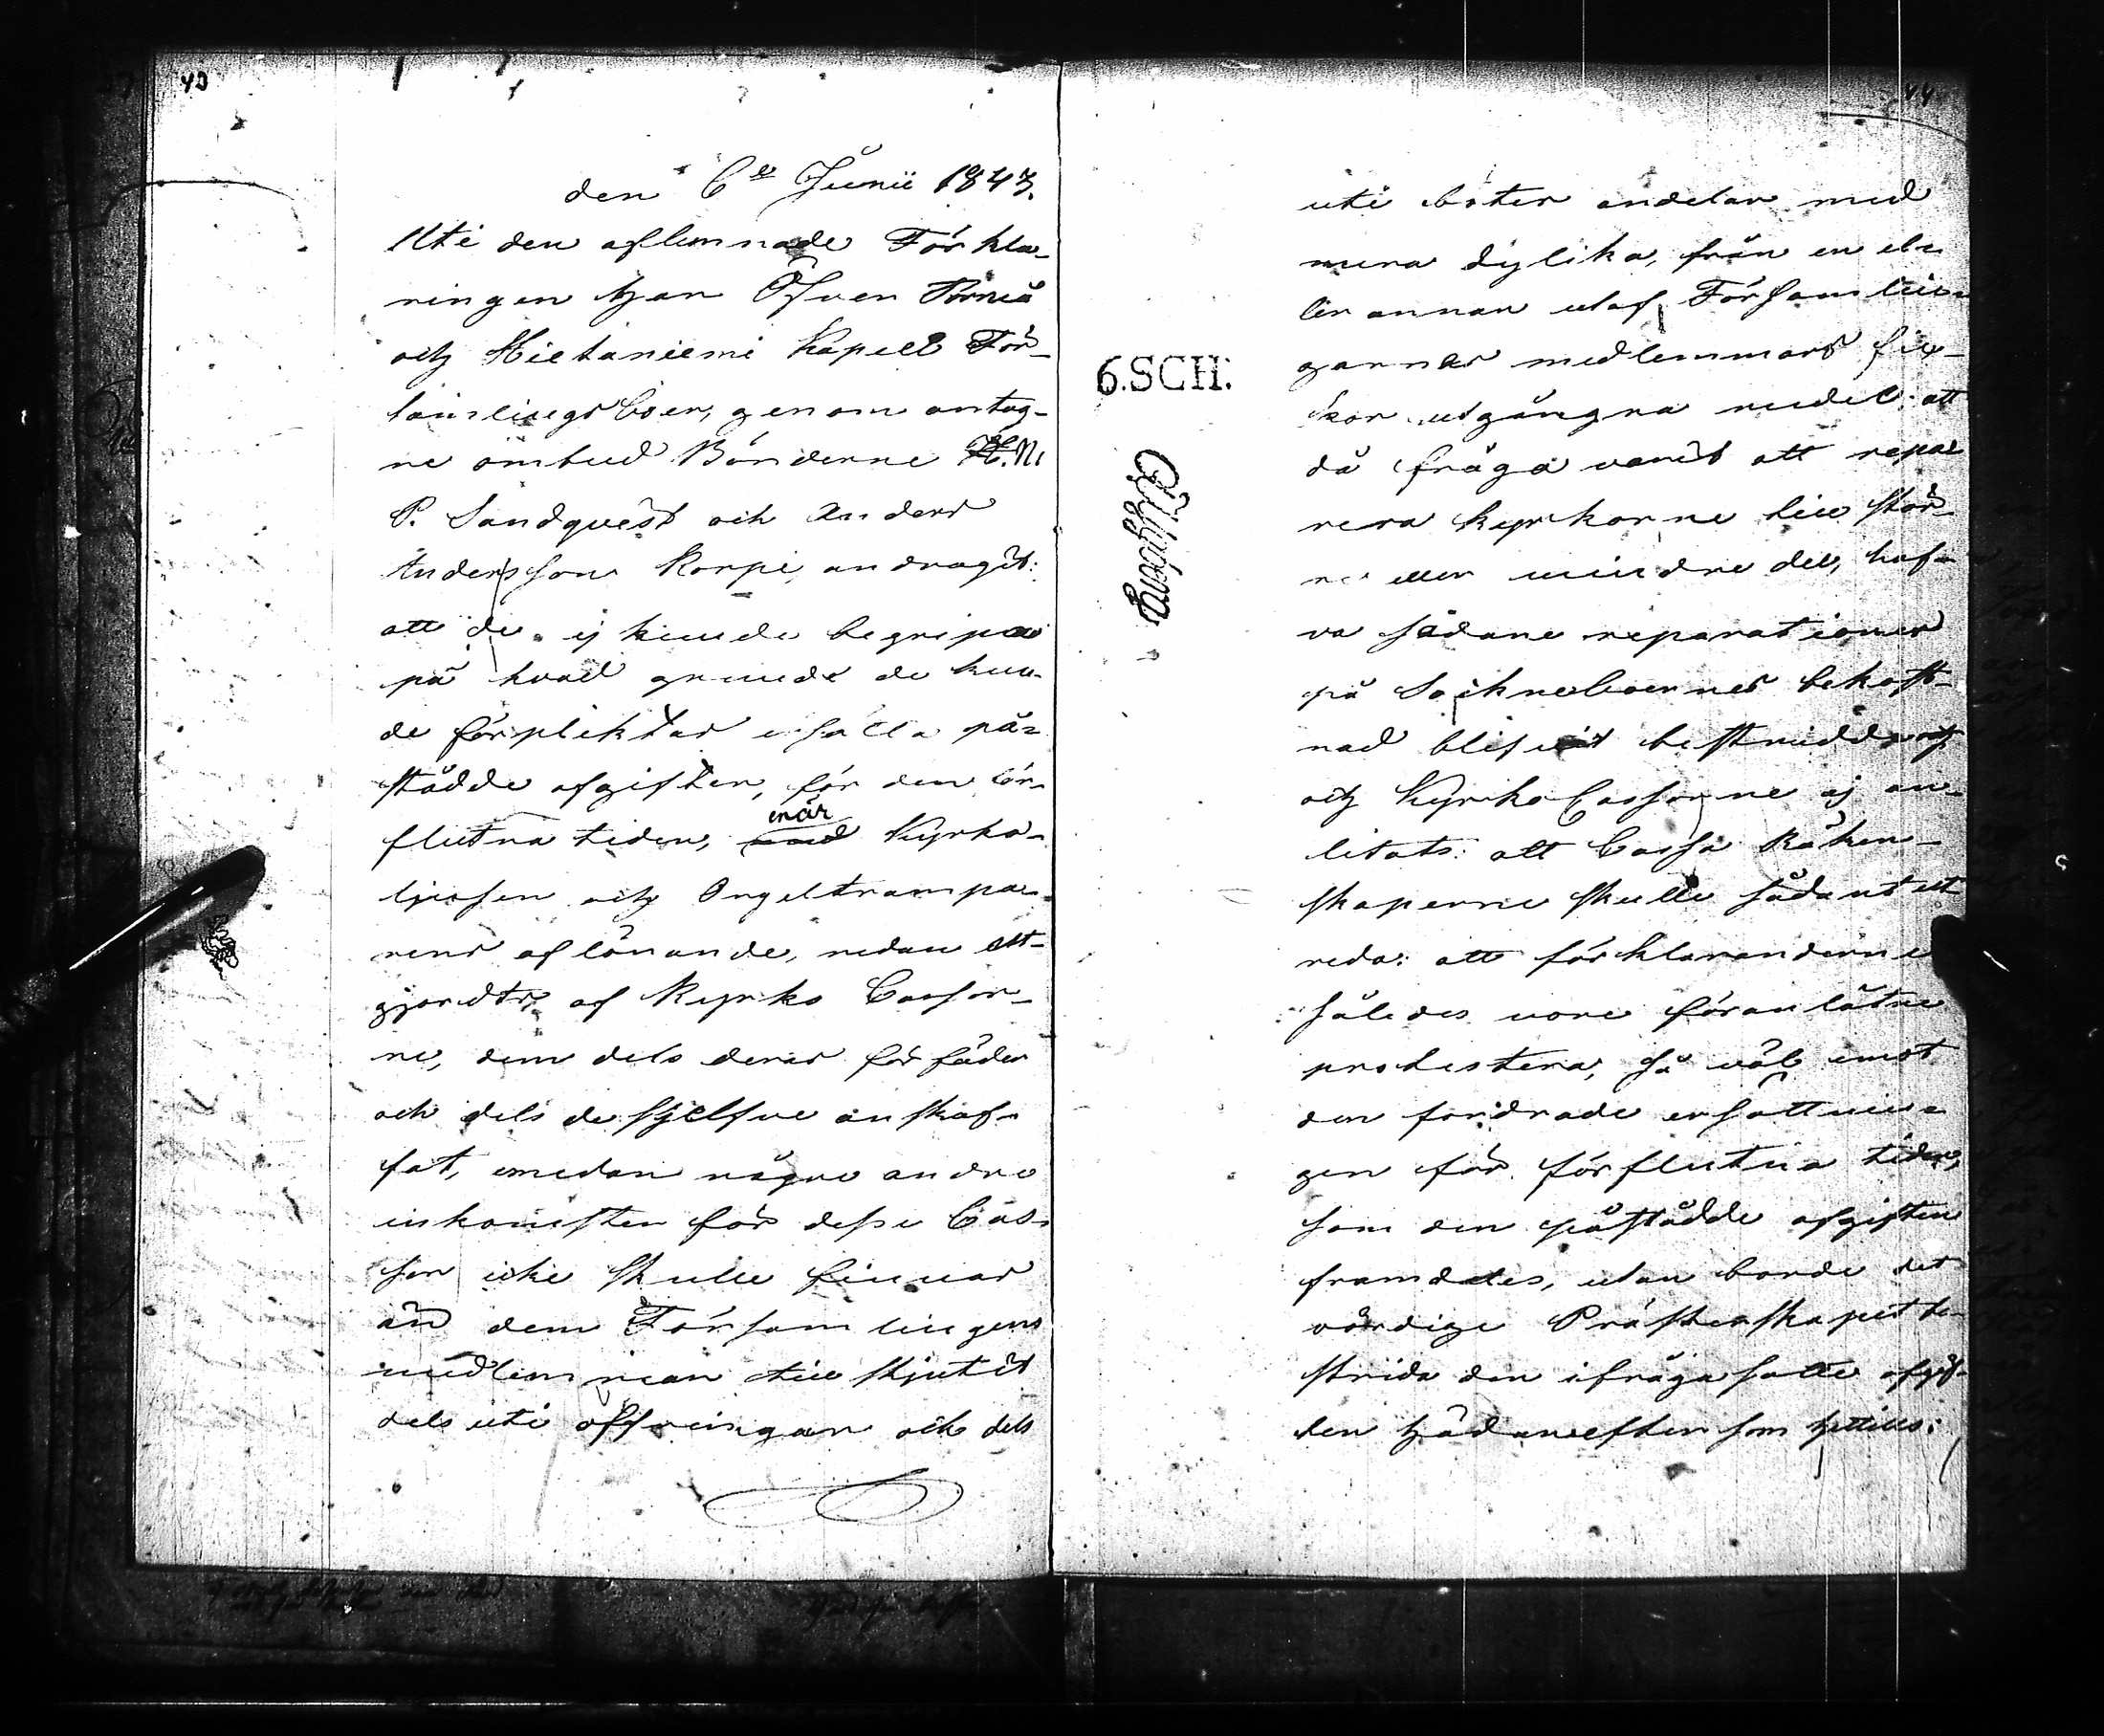 43
den 6te Junii 1843.
Uti den aflemnade Förkla-
ringen har Öfver Torneå
och Hietaniemi Kapell För-
samlingsboer, genom antag-
ne ombud Bönderne
P. Sandqvist och Anders
Andersson Korpi, andragit:
att de ej kunde begripa
på hvad grund de kun-
de förpliktas ersätta på-
stådde afgiften, för den för-
flutna tiden, enär Kyrko-
ljusen och Orgeltrampa-
rens aflönande, redan ut-
gjordts af Kyrko Cassor-
ne, dem dels deras förfäder
och dels de sjelfve anskaf-
fat, emedan någre andre
inkomster för desse Cas-
sor icke skulle finnas
än dem Församlingens
medlemmar tillskjutit
dels uti offringar och dels
44
uti böter andelar med
mera dylika, från en el-
ler annan utaf Församlin-
garnes medlemmars fic-
kor utgångna medel: att
då fråga varit att repa-
rera kyrkorne till stör-
re eller mindre del, haf-
va sådane reparationer
på Socknboernes bekost-
nad blifvit bestridde
och Kyrko Cassorne ej an-
litats: att Cassa Räken-
skaperne skulle sådant ut-
reda: att förklaranderne
således vore föranlåtne
protestera, så väl emot
den fordrade ersättnin-
gen för förflutna tider,
som den påstådde afgiften
framdeles, utan borde det
vördige Prästerskapet be-
strida den ifrågasatte afgif-
ten hädanefter som hittills:
6.SCH: